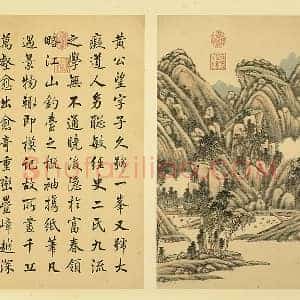 黃公望字子久號一峯又號大
癡道人幼聰敏經史二氏九流
之學無不通曉後隱於富春領
略江山釣臺之概袖攜紙筆凡
遇景物輒即模記故所畫千丘
萬壑愈出愈奇重巒疊嶂越深